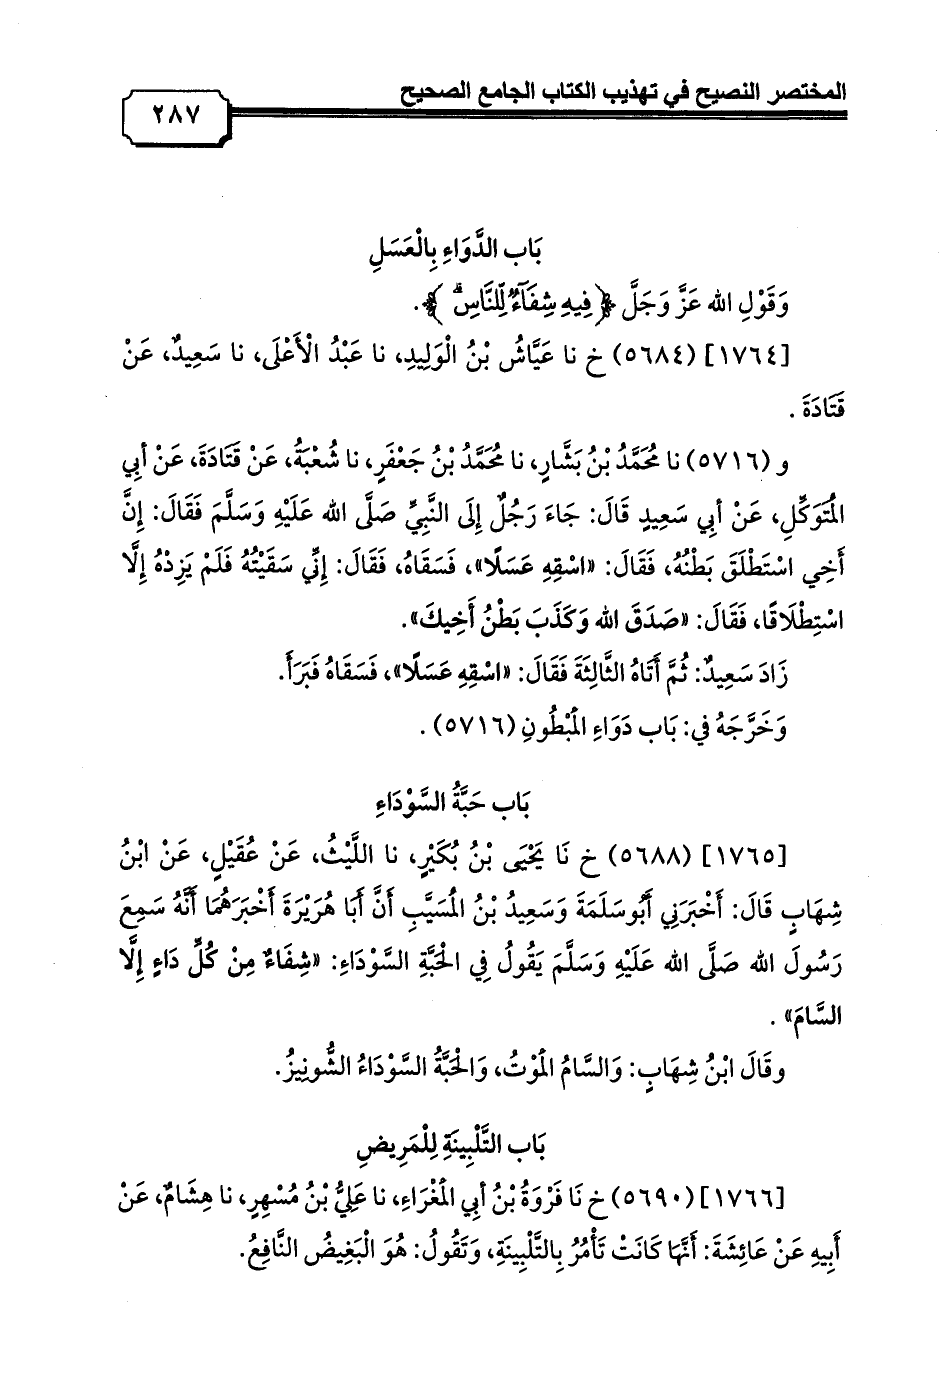 المختصر النصيح في تهذيب الكتاب الجامع الصحيح
٢٨٧
بَاب الدَّوَاءِ بِالْعَسَلِ
وَقَوْلِ الله عَزَّ وَجَلَّ ﴿فِيهِ شِفَآءٌ لِّلنَّاسِۗ﴾.
[١٧٦٤] (٥٦٨٤) خ نا عَيَّاشُ بْنُ الْوَلِيدِ، نا عَبْدُ الْأَعْلَى، نا سَعِيدٌ، عَنْ
قَتَادَةَ .
و (٥٧١٦) نا مُحَمَّدُ بْنُ بَشَّارٍ، نا مُحَمَّدُ بْنُ جَعْفَرٍ، نا شُعْبَةُ، عَنْ قَتَادَةَ، عَنْ أبِي
المُتَوَكِّلِ، عَنْ أبِي سَعِيدٍ قَالَ: جَاءَ رَجُلٌ إِلَى النَّبِيِّ صَلَّى الله عَلَيْهِ وَسَلَّمَ فَقَالَ: إِنَّ
أَخِي اسْتَطْلَقَ بَطْنُهُ، فَقَالَ: «اسْقِهِ عَسَلًا»، فَسَقَاهُ، فَقَالَ: إِنِّي سَقَيْتُهُ فَلَمْ يَزِدْهُ إِلَّا
اسْتِطْلَاقًا، فَقَالَ: «صَدَقَ الله وَكَذَبَ بَطْنُ أَخِيكَ».
زَادَ سَعِيدٌ: ثُمَّ أَتَاهُ الثَّالِثَةَ فَقَالَ: «اسْقِهِ عَسَلًا»، فَسَقَاهُ فَبَرَأَ.
وَخَرَّجَهُ في: بَاب دَوَاءِ المَبْطُونِ (٥٧١٦) .
بَاب حَبَّةُ السَّوْدَاءِ
[١٧٦٥] (٥٦٨٨) خ نَا يَحْيَى بْنُ بُكَيْرٍ، نا اللَّيْثُ، عَنْ عُقَيْلٍ، عَنْ ابْنُ
شِهَابٍ قَالَ: أَخْبَرَنِي أَبُوسَلَمَةَ وَسَعِيدُ بْنُ المُسَيَّبِ أَنَّ أبَا هُرَيْرَةَ أَخْبَرَهُمَا أَنَّهُ سَمِعَ
رَسُولَ الله صَلَّى الله عَلَيْهِ وَسَلَّمَ يَقُولُ فِي الْحَبَّةِ السَّوْدَاءِ: «شِفَاءٌ مِنْ كُلِّ دَاءٍ إِلَّا
السَّامَ» .
وقَالَ ابْنُ شِهَابٍ: وَالسَّامُ المَوْتُ، وَالْحَبَّةُ السَّوْدَاءُ الشُّونِيزُ.
بَاب التَّلْبِينَةِ لِلْمَرِيضِ
[١٧٦٦] (٥٦٩٠) خ نَا فَرْوَةُ بْنُ أبِي المَغْرَاءِ، نا عَلِيُّ بْنُ مُسْهِرٍ، نا هِشَامٌ، عَنْ
أبِيهِ عَنْ عَائِشَةَ: أَنَّهَا كَانَتْ تَأْمُرُ بِالتَّلْبِينَةِ، وَتَقُولُ: هُوَ الْبَغِيضُ النَّافِعُ.